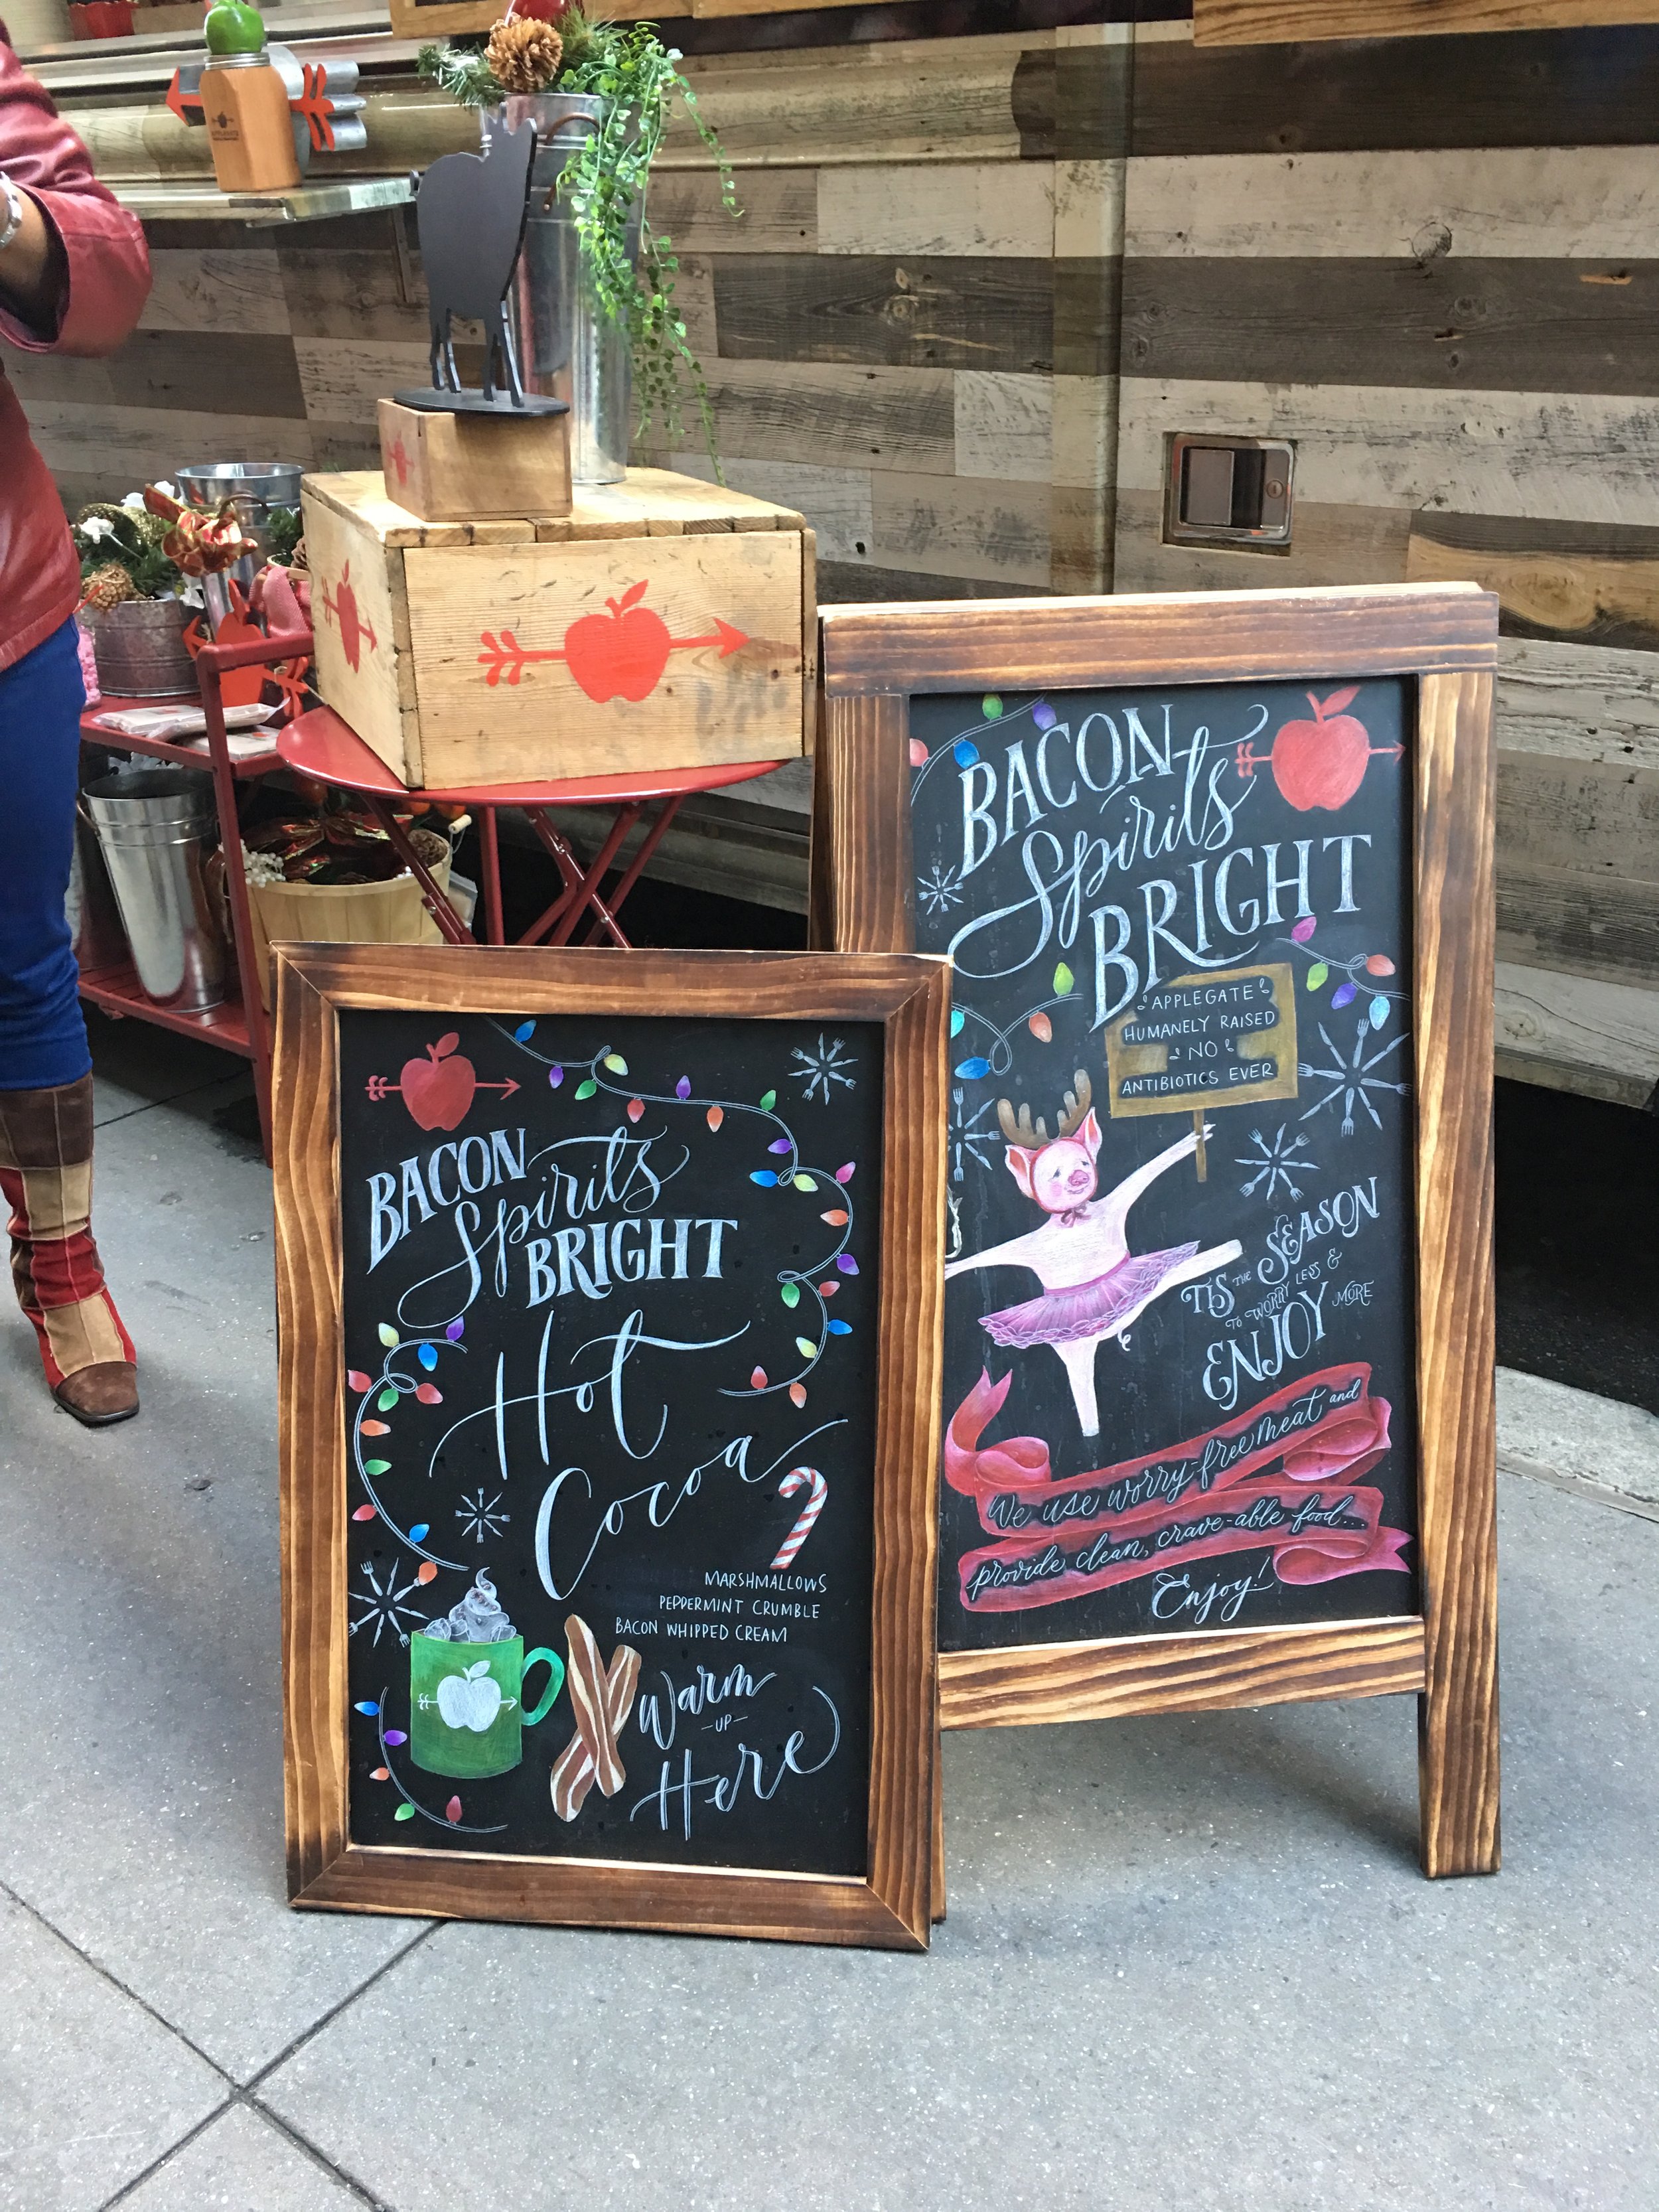 BACON
Spirits
BRIGHT
Hot
Cocoa
MARSHMALLOWS
PEPPERMINT CRUMBLE
BACON WHIPPED CREAM
Warm
-UP-
Here
BACON
Spirits
BRIGHT
APPLEGATE
HUMANELY RAISED
NO
ANTIBIOTICS EVER
TIS THE SEASON
TO WORRY LESS &
ENJOY MORE
We use worry-free meat and
provide clean, crave-able food...
Enjoy!